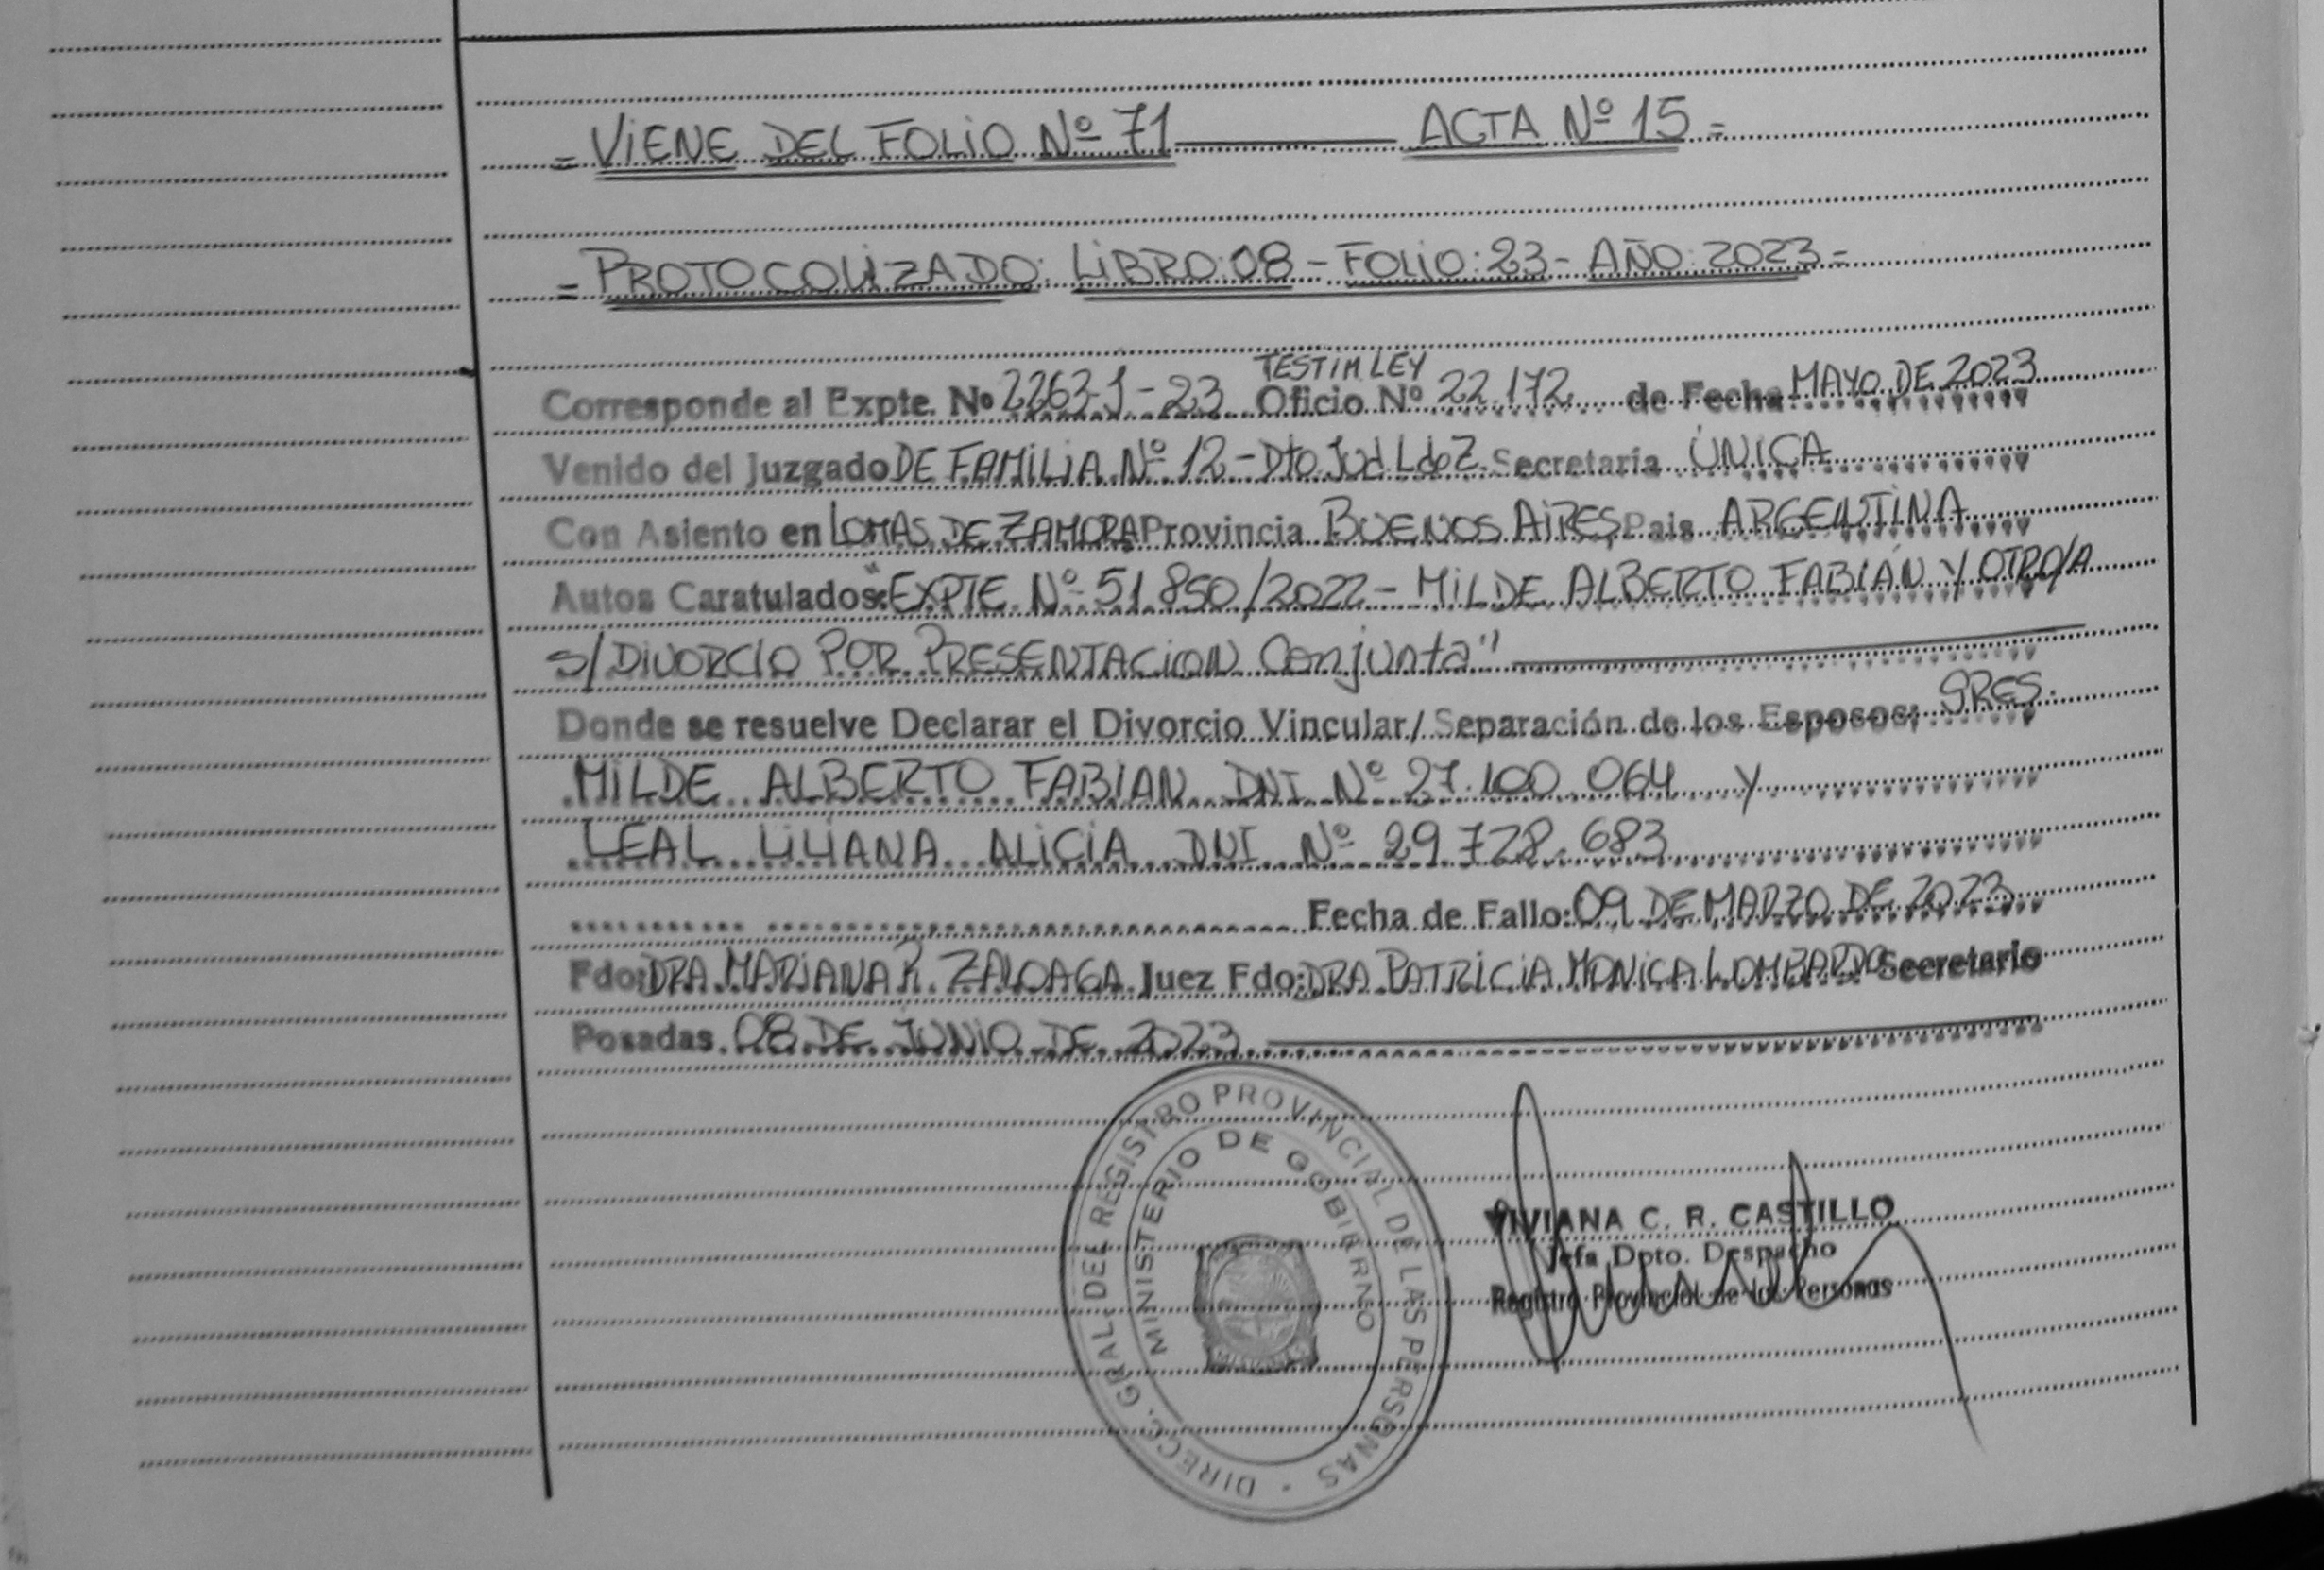 = VIENE DEL FOLIO Nº 71 ACTA Nº 15 =
= PROTOCOLIZADO: LIBRO: 08 - FOLIO: 23 - AÑO: 2023 =
TESTIM LEY
Corresponde al Expte. Nº 2263-J-23 Oficio Nº 22.172 de Fecha MAYO DE 2023
Venido del Juzgado DE FAMILIA Nº 12 - Dto Jud LdeZ. Secretaría ÚNICA
Con Asiento en LOMAS DE ZAMORA Provincia BUENOS AIRES País ARGENTINA
Autos Caratulados: "EXPTE Nº 51850/2022 - MILDE ALBERTO FABIÁN Y OTRO/A
S/ DIVORCIO POR PRESENTACION Conjunta"
Donde se resuelve Declarar el Divorcio Vincular/ Separación de los Esposos; SRES.
MILDE ALBERTO FABIAN DNI Nº 27.100.064 y
LEAL LILIANA ALICIA DNI Nº 29.728.683
Fecha de Fallo: 09 DE MARZO DE 2023
Fdo: DRA. MARIANA R. ZALOAGA Juez Fdo: DRA PATRICIA MONICA LOMBARDO Secretario
Posadas 08 DE JUNIO DE 2023
DIRECC. GRAL. DEL REGISTRO PROVINCIAL DE LAS PERSONAS
MINISTERIO DE GOBIERNO
VIVIANA C. R. CASTILLO
Jefa Dpto. Despacho
Registro Provincial de las Personas